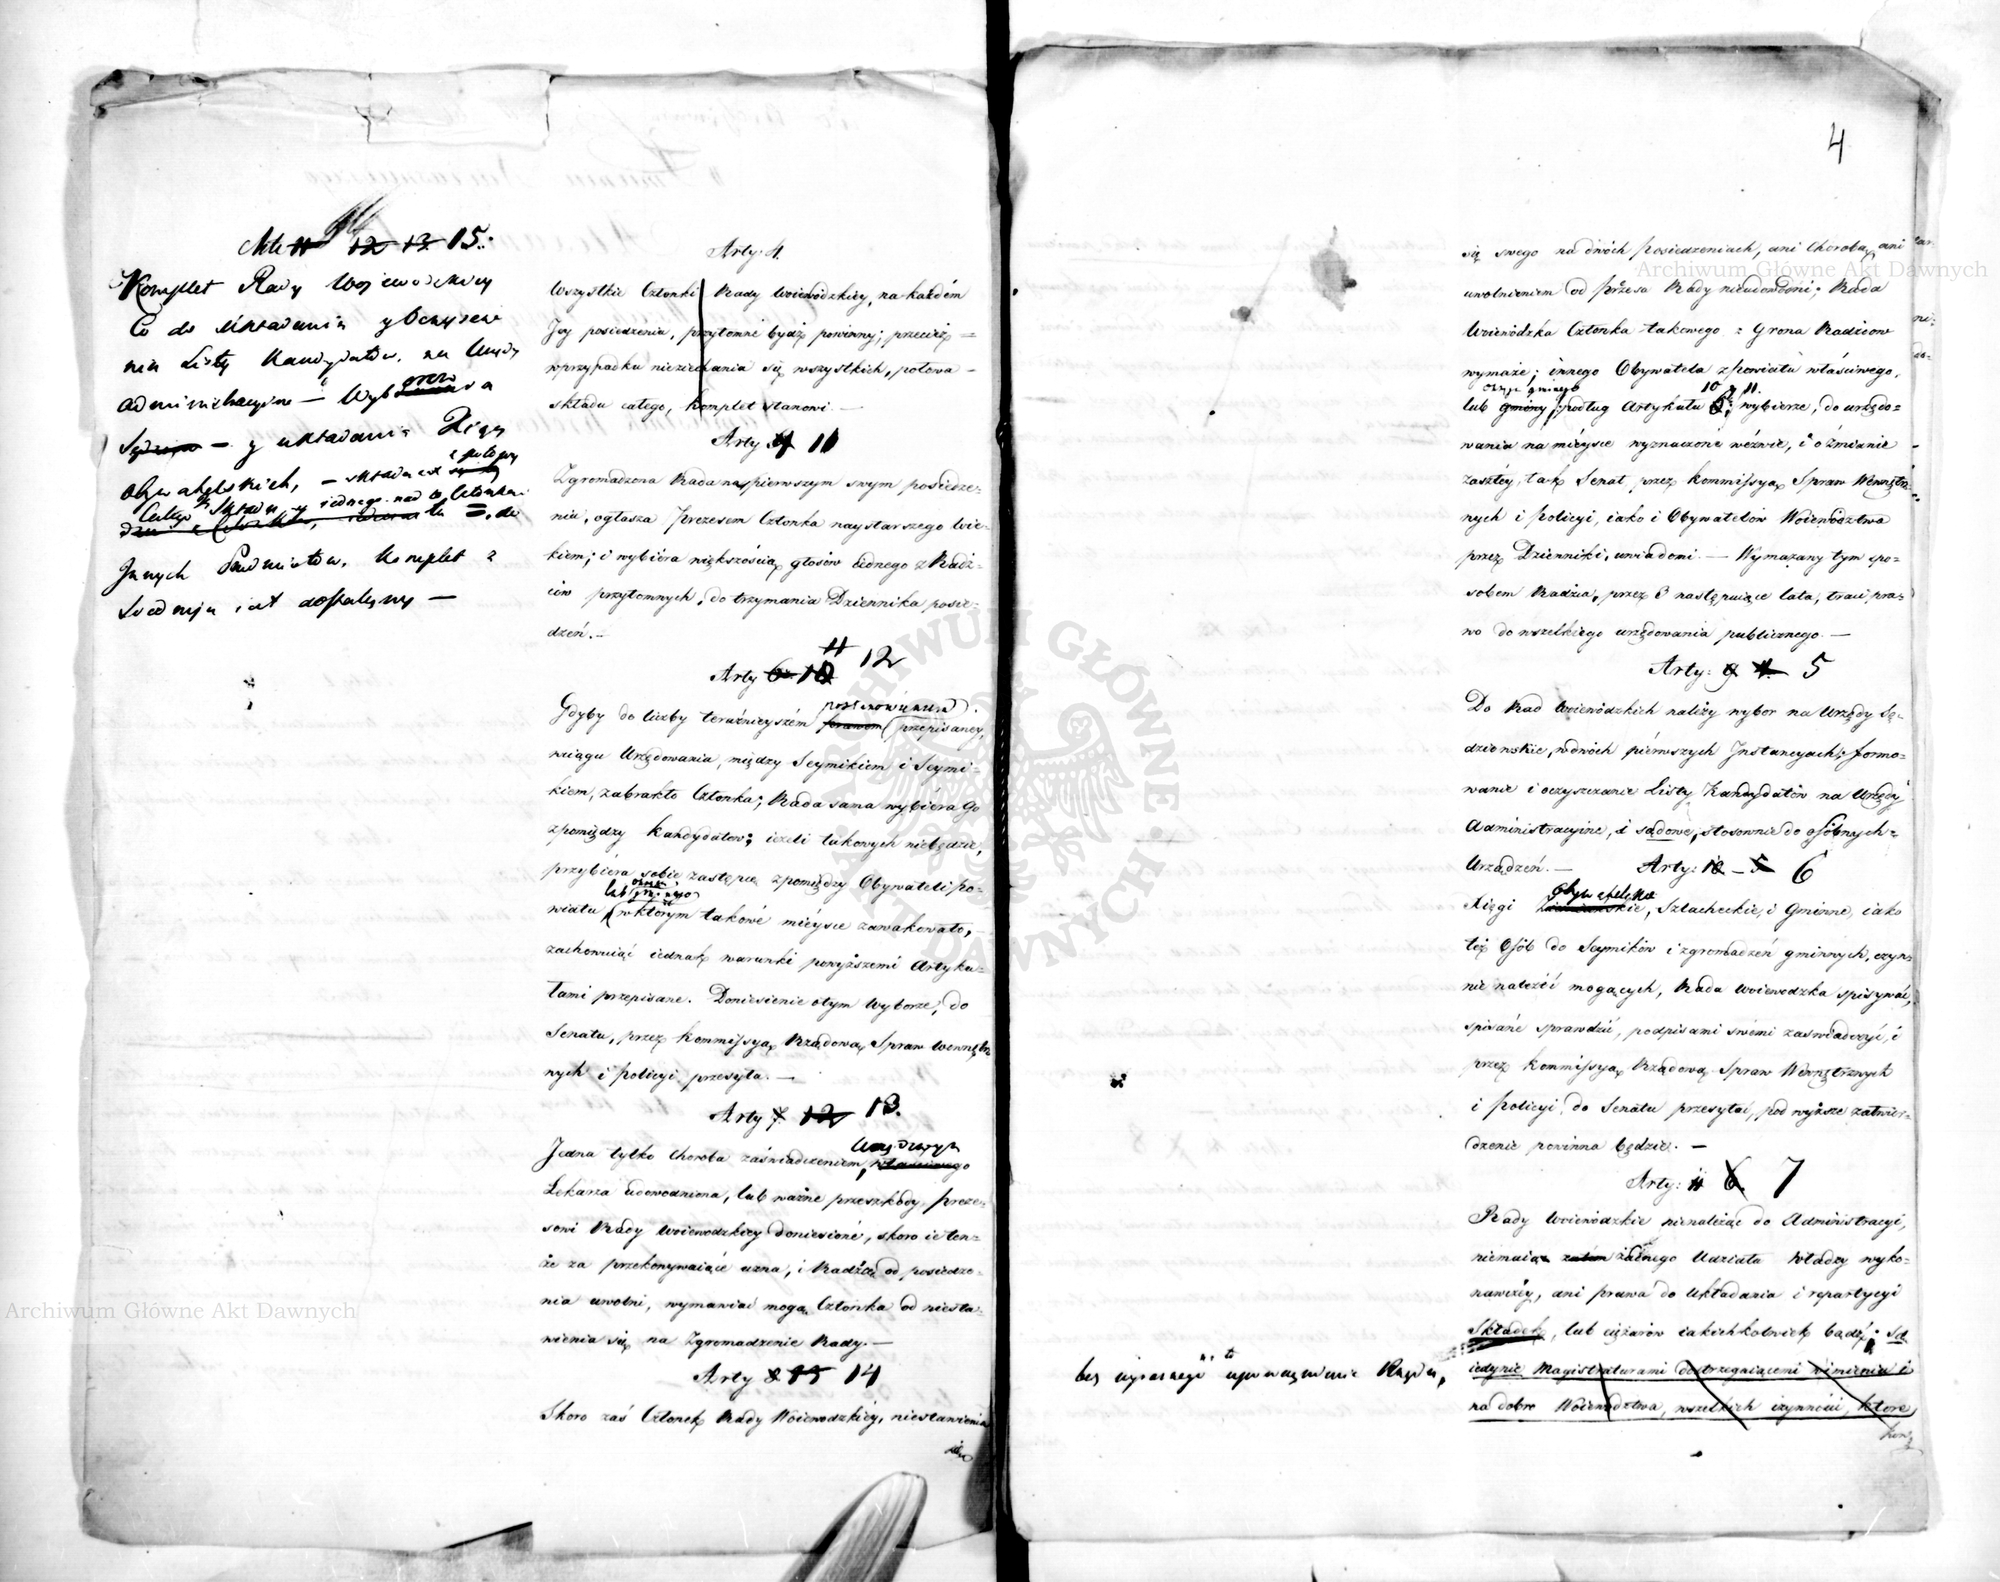 4
Arty 11 12 13 15.
Komplet Rady Wojewódzkiey
Co do układania y Oczyszcze
nia Listy Kandydatów, na Urzędy
administracyine — Wyb
Sędziow — y układania Xiąg
obywatelskich, — składa się z połowy
Całego Składu y iednego nad to Członka
Innych Przedmiotów, Komplet z
Siedmiu iest dostateczny —
Arty. 4.
Wszystkie Członki Rady Woiewodzkiey, na każdém
Jey posiedzeniu, przytomne bydź powinny; przecież =
w przypadku nieziechania się wszystkich, połowa —
składu całego, komplet stanowi. —
Arty 11
Zgromadzona Rada na pierwszym swym posiedze-
niu, ogłasza Prezesem Członka naystarszego wie-
kiem; i wybiéra większością głosów iednego z Radz-
ców przytomnych, do trzymania Dziennika posie-
dzeń. —
11
Arty 6 10 12
postanowieniem
Gdyby do liczby teraźnieyszém prawem przepisaney,
w ciągu Urzędowania, między Seymikiem i Seymi-
kiem, zabrakło Członka; Rada sama wybiéra Go
z pomiędzy Kandydatów; ieżeli takowych niebędzie,
przybiéra sobie zastępcę z pomiędzy Obywateli Po-
lub gminnego
wiatu w którym takowé mieysce zawakowało,
zachowuiąć iednak warunki powyższemi Artyku-
łami przepisane. Doniesienie o tym Wyborze, do
Senatu, przez Kommissyą Rządową Spraw Wewnętrz
nych i Policyi przesyła. —
Arty 7. 12 13.
Urzędowym
Jedna tylko Choroba zaświadczeniem, właściwego
Lekarza udowodniona, lub ważne przeszkody, Preze-
sowi Rady Woiewodzkiey doniesioné, skoro ie ten-
że za przekonywaiące uzna, i Radzcę od posiedze-
nia uwolni, wymawiać mogą Członka od niesta-
wienia się na Zgromadzenie Rady. —
Arty 8 13 14
Skoro zaś Członek Rady Woiewodzkiéy, niestawienia
się swego na dwóch posiedzeniach, ani Chorobą, ani
uwolnieniem od Prezesa Rady nieudowodni; Rada
Woiewódzka Członka takowego z Grona Radzców
wymaże; innego Obywatela z powiatu właściwego,
10 y 11.
lub gminy podług Artykułu 5; wybierze, do urzędo=
wania na mieysce wyznaczoné wezwie, i o zmianie
zaszłéy, tak Senat, przez Kommissyą Spraw Wewnętrz
nych i Policyi, iako i Obywatelów Woiewództwa
przez Dzienniki, uwiadomi. — Wymazany tym spo-
sobem Radzca, przez 6 następuiące lata, traci pra-
wo do wszelkiego urzędowania publicznego. —
Arty: 9 4. 5
Do Rad Woiewódzkich należy wybor na Urzędy Sę-
dziowskie, w dwóch piérwszych Instancyach; formo-
wanie i oczyszczanie Listy Kandydatów na Urzędy
Administracyine, i sądowe, stosownie do osóbnych =
Urządzeń. — Arty: 10 — 5 6
obywatelskie
Xięgi Ziemianskie, Szlacheckie, i Gminne, iako
też Osób do Seymików i zgromadzeń gminnych, czyn-
nie należéć mogących, Rada Woiewodzka spisywać,
spisané sprawdzić, podpisami swémi zaświadczyć, i
przez Kommissyą Rządową Spraw Wewnętrznych
i Policyi, do Senatu przesyłać, pod wyższe zatwier-
dzenie powinna będzie. —
Arty: 11 6. 7
Rady Woiewódzkie nienależąc do Administracyi,
niemaią zatém żadnego Udziału Władzy wyko-
nawczéy, ani prawa do układania i repartycyi
Składek, lub ciężarów iakichkolwiek bądź; są
bez wyraznego upoważnienia Rządu,
iedynie Magistraturami dostrzegaiącemi w imieniu i
na dobro Woiewództwa, wszelkich czynności, które
Archiwum Główne Akt Dawnych
Archiwum Główne Akt Dawnych
ARCHIWUM GŁÓWNE AKT DAWNYCH